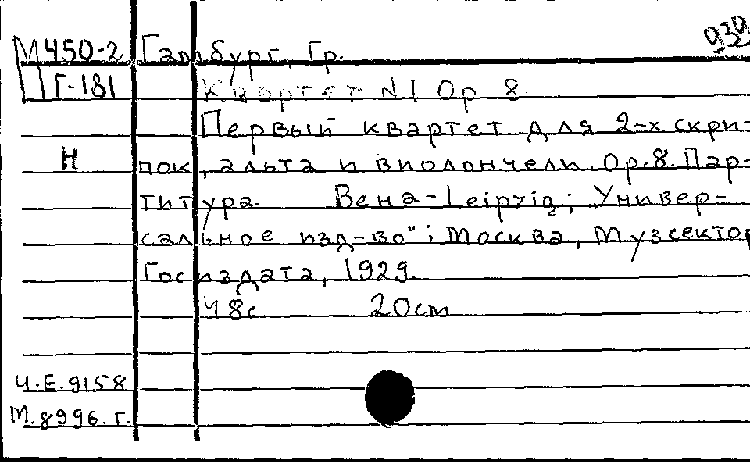 939
М450-2 Гамбург, Гр.
Г-181 Квартет N1 Op 8
Первый квартет для 2-х скри-
Н пок, альта и виолончели. Ор.8. Пар-
титура. Вена-Leipzig; Универ-
сальное изд-во"; Москва, Музсектор
Госиздата, 1929.
48с 20cm
Ч.Е.9158
М.8996.г.